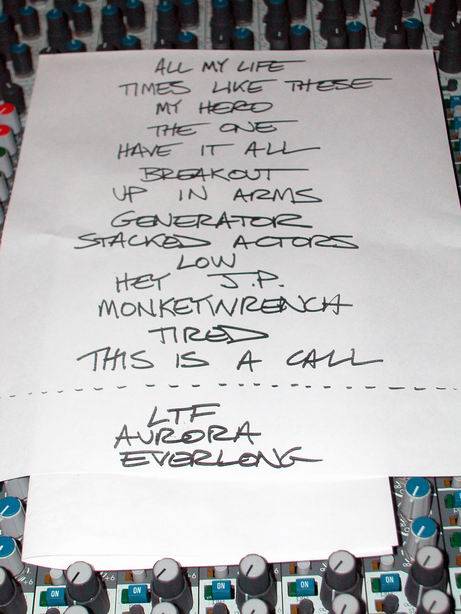 ALL MY LIFE
TIMES LIKE THESE
MY HERO
THE ONE
HAVE IT ALL
BREAKOUT
UP IN ARMS
GENERATOR
STACKED ACTORS
LOW
HEY J.P.
MONKEYWRENCH
TIRED
THIS IS A CALL
LTF
AURORA
EVERLONG
ON
ON
ON
ON